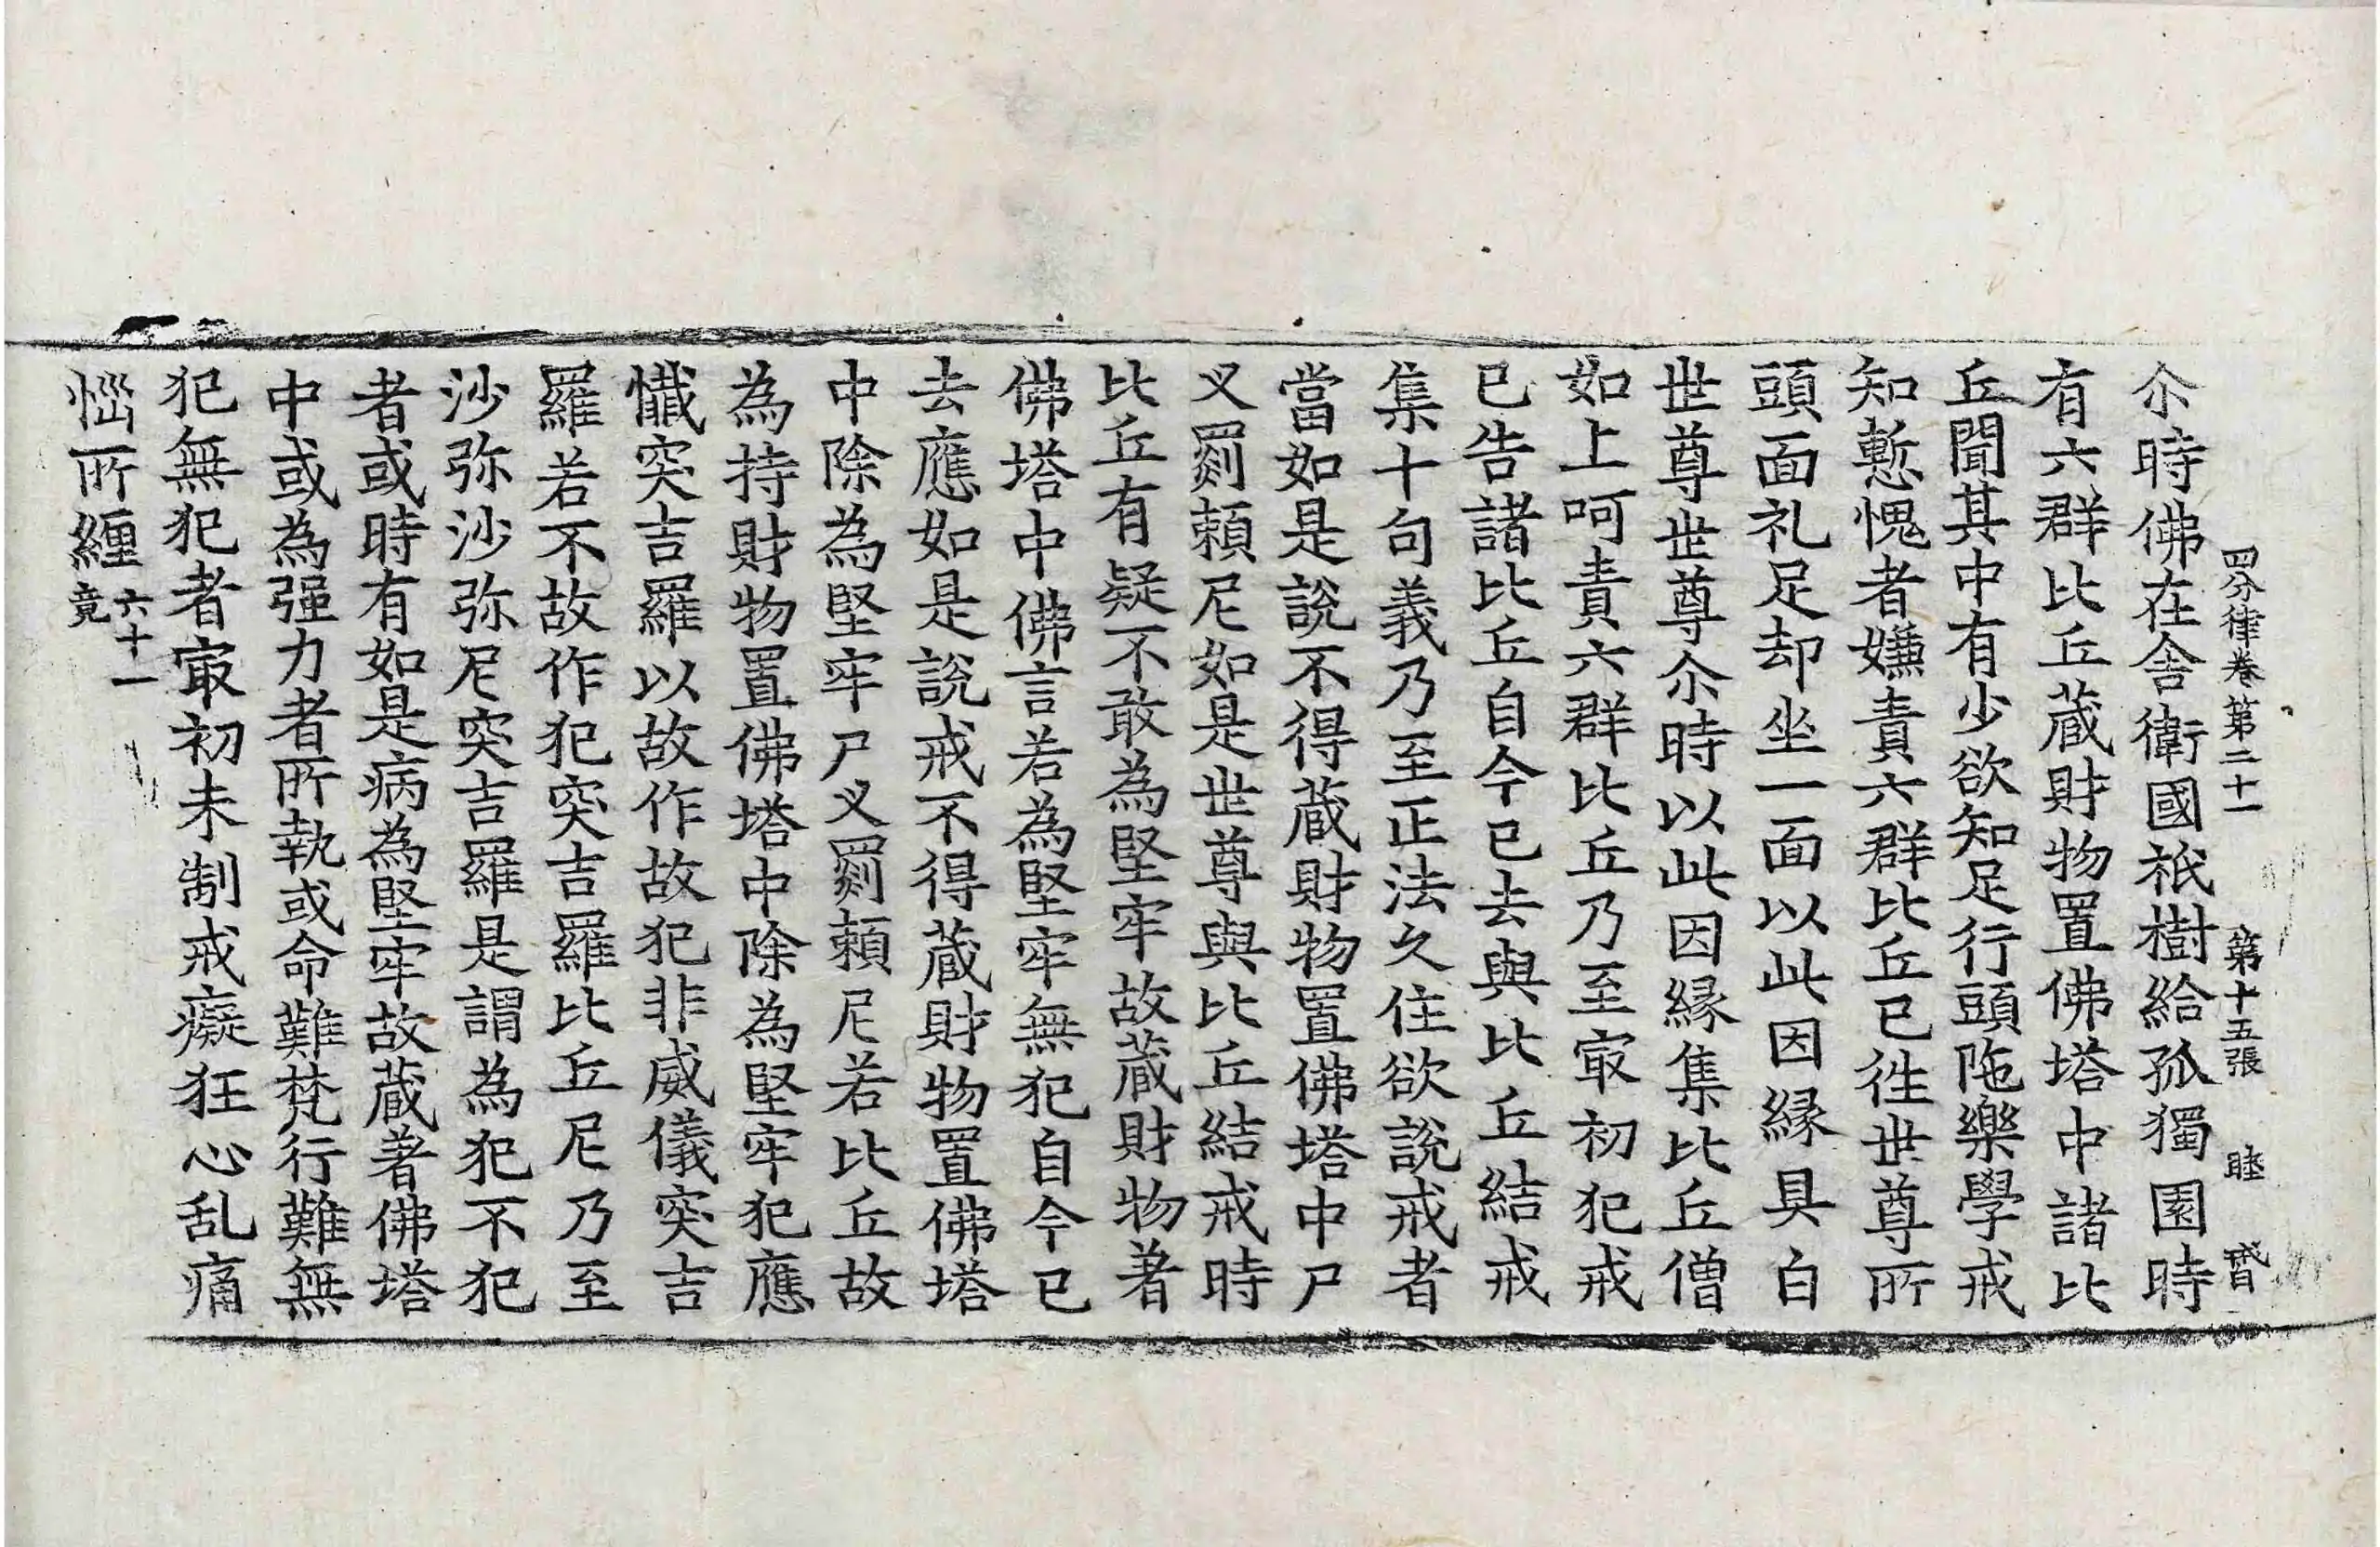 四分律卷第二十一　第十五張　睦
尒時佛在舍衛國祇樹給孤獨園時
有六群比丘蔵財物置佛塔中諸比
丘聞其中有少欲知足行頭陁樂學戒
知慙愧者嫌責六群比丘已徃世尊所
頭面礼足却坐一面以此因縁具白
世尊世尊尒時以此因縁集比丘僧
如上呵責六群比丘乃至㝡初犯戒
已告諸比丘自今已去與比丘結戒
集十句義乃至正法久住欲說戒者
當如是說不得蔵財物置佛塔中尸
叉罽頼尼如是世尊與比丘結戒時
比丘有疑不敢為堅牢故蔵財物著
佛塔中佛言若為堅牢無犯自今已
去應如是說戒不得蔵財物置佛塔
中除為堅牢尸叉罽頼尼若比丘故
為持財物置佛塔中除為堅牢犯應
懺突吉羅以故作故犯非威儀突吉
羅若不故作犯突吉羅比丘尼乃至
沙弥沙弥尼突吉羅是謂為犯不犯
者或時有如是病為堅牢故蔵著佛塔
中或為强力者所執或命難梵行難無
犯無犯者㝡初未制戒癡狂心乱痛
惱所纏六十一竟